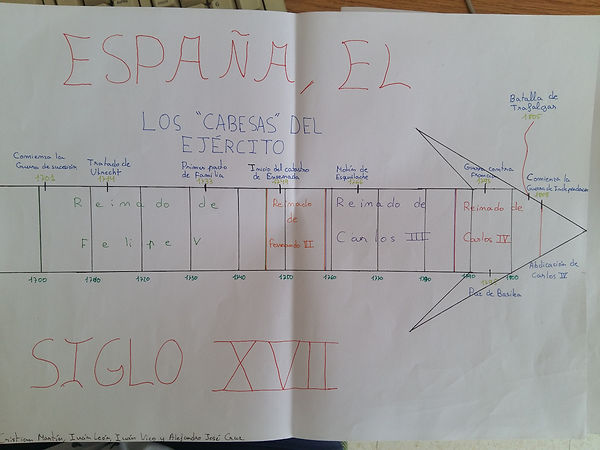 ESPAÑA, EL
LOS "CABESAS" DEL
EJÉRCITO
Batalla de
Trafalgar
1805
Comienza la
Guerra de sucesión
1701
Tratado de
Utrecht
1714
Primer pacto
de Familia
1733
Inicio del catastro
de Ensenada
1749
Motín de
Esquilache
1766
Guerra contra
Francia
1793
Comienza la
Guerra de Independencia
1808
Reinado de
Felipe V
Reinado
de
Fernando VI
Reinado de
Carlos III
Reinado de
Carlos IV
Abdicación de
Carlos IV
1700
1710
1720
1730
1740
1750
1760
1770
1780
1790
1800
1795
Paz de Basilea
SIGLO XVII
Cristian Martín, Iván León, Iván Vico y Alejandro José Cruz